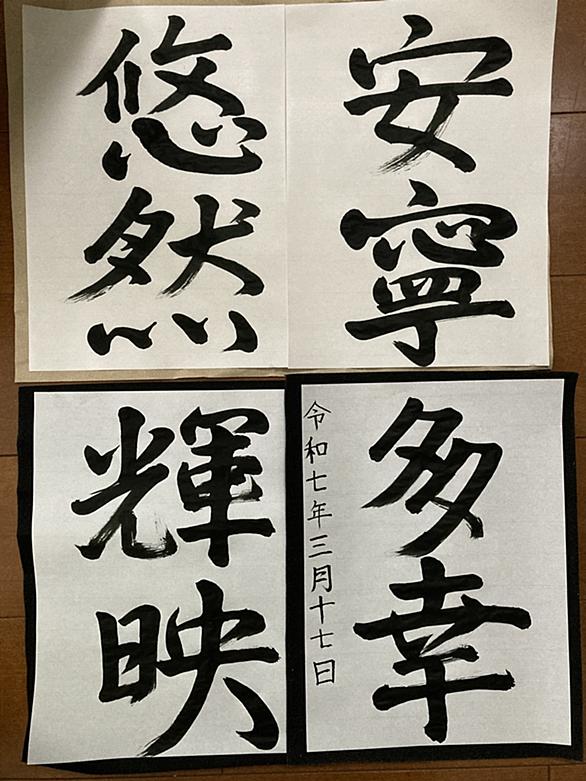 安寧
悠然
多幸
令和七年三月十七日
輝映